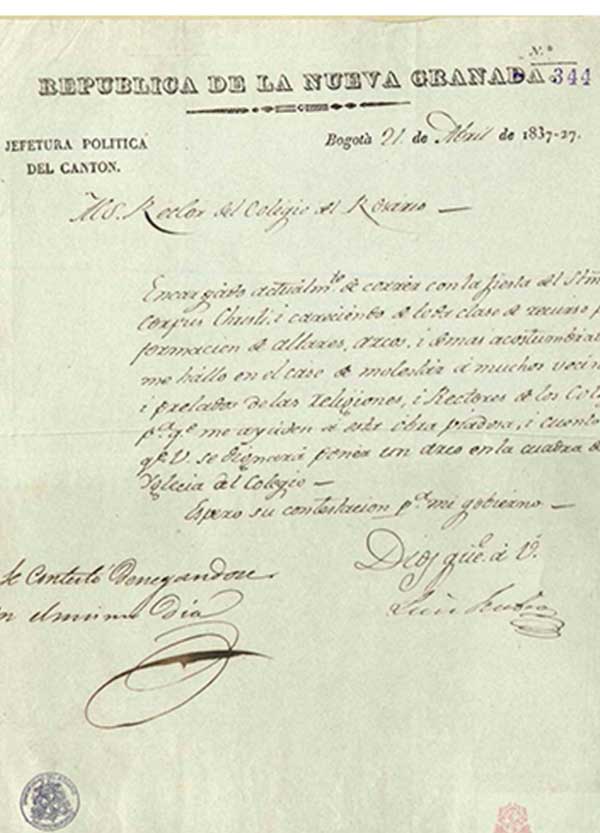 N.º
REPUBLICA DE LA NUEVA GRANADA. 344
JEFETURA POLITICA
DEL CANTON.
Bogotà 21 de Abril de 1837-27.
Al S. Rector del Colegio del Rosario —
Encargado actualm.te de correr con la fiesta del Stm
Corpus Christi, i careciendo de toda clase de recurso p
formacion de altares, arcos, i demas acostumbra
me hallo en el caso de molestar á muchos vecin
i prelados de las religiones, i Rectores de los Col
p.a q.e me ayuden a esta obra piadosa, i cuento
q.e V. se dignará poner un arco en la cuadra d
Yglecia del Colegio —
Espero su contestacion p.a mi gobierno —
Dios gue. á V.
Luis
Se contestó denegandose
en el mismo dia